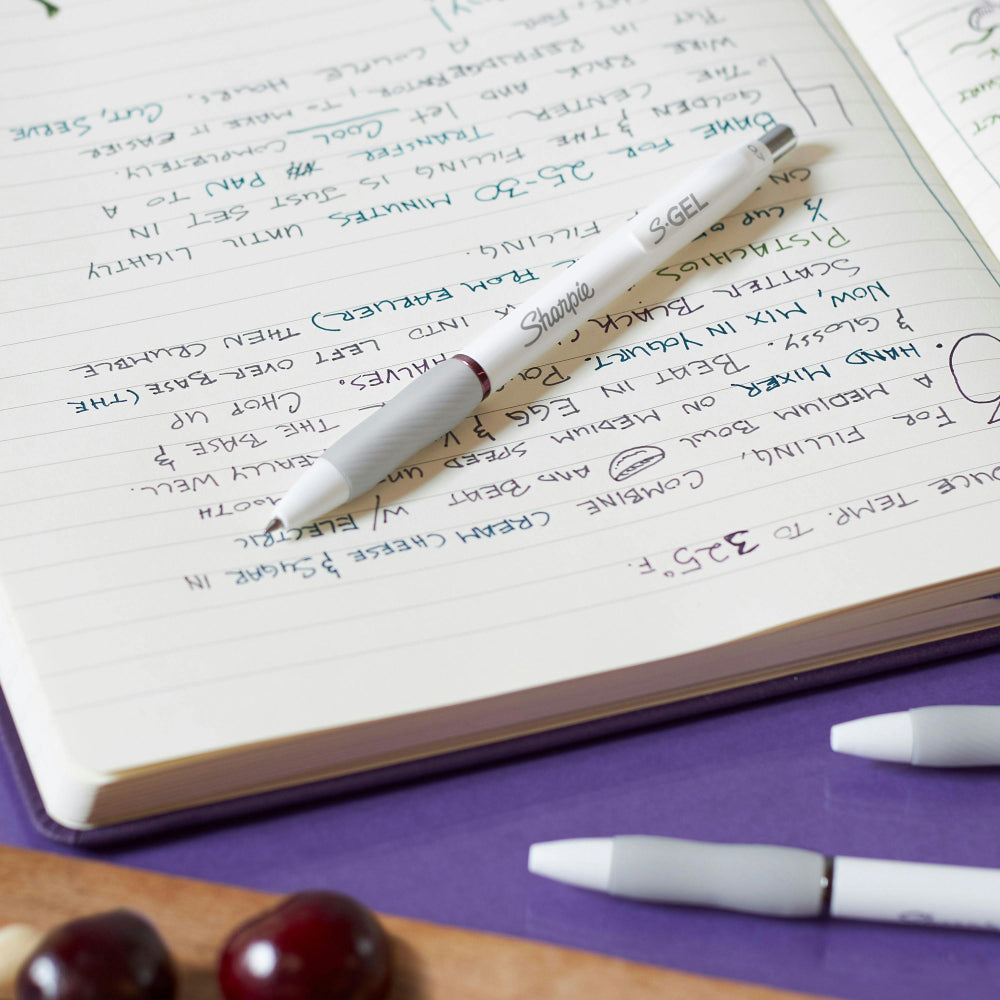 TEMP. TO 325°F.
3. FOR FILLING, COMBINE CREAM CHEESE & SUGAR IN
A MEDIUM BOWL AND BEAT w/ ELECTRIC
HAND MIXER ON MEDIUM SPEED
& GLOSSY. BEAT IN EGG & REALLY WELL.
NOW, MIX IN YOGURT. THE BASE &
SCATTER BLACK HALVES. CHOP UP
PISTACHIOS INTO LEFT OVER BASE (THE
⅓ CUP OF FROM EARLIER) THEN CRUMBLE
ON FILLING.
4. BAKE FOR 25-30 MINUTES UNTIL LIGHTLY
GOLDEN & THE FILLING IS JUST SET IN
THE CENTER TRANSFER PAN TO A
WIRE RACK AND let COOL COMPLETELY.
PUT IN REFRIDGERATOR, TO MAKE IT EASIER
CUT, FOR A COUPLE HOURS. CUT, SERVE
Sharpie S·GEL